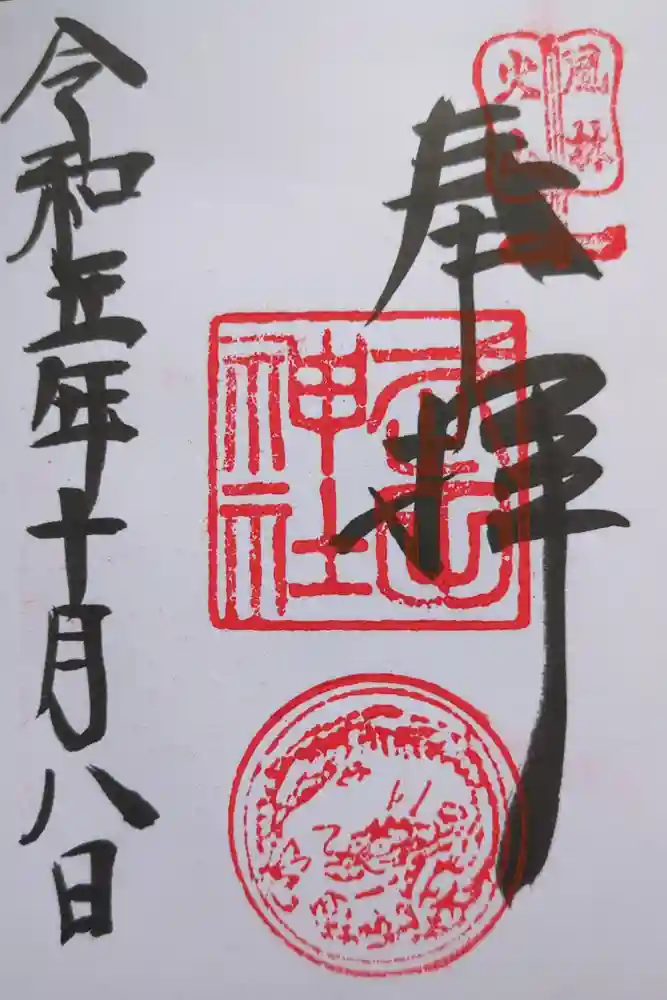 風林
火山
奉拝
神社
令和五年十月八日